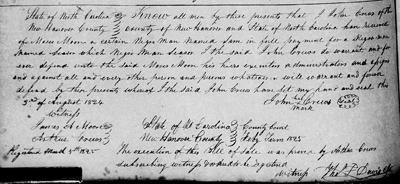 State of North Carolina } Know all men by these presents that I John Crews of the
New Hanover County } County of New Hanover and State of North Carolina have received
of Moses Moore a certain Negro Man named Sam in full pay ment for a Negro man
named Isaac which Negro Man Isaac I the said John Crews do warrant and for
ever defend unto the said Moses Moore his heirs executors administrators and assigns
and against all and every other person and persons whatsoever will warrant and forever
defend by these presents whereof I the said John Crews have set my hand and seal this
3rd of August 1824 John his Crews
Witness mark
James A Moore } State of N Carolina } County Court
Arthur } New Hanover County } Feby Term 1825
Registered March 5th 1825 The execution of this Bill of Sale was proven by Arthur
subscribing witness & ordered to be registered
Witness